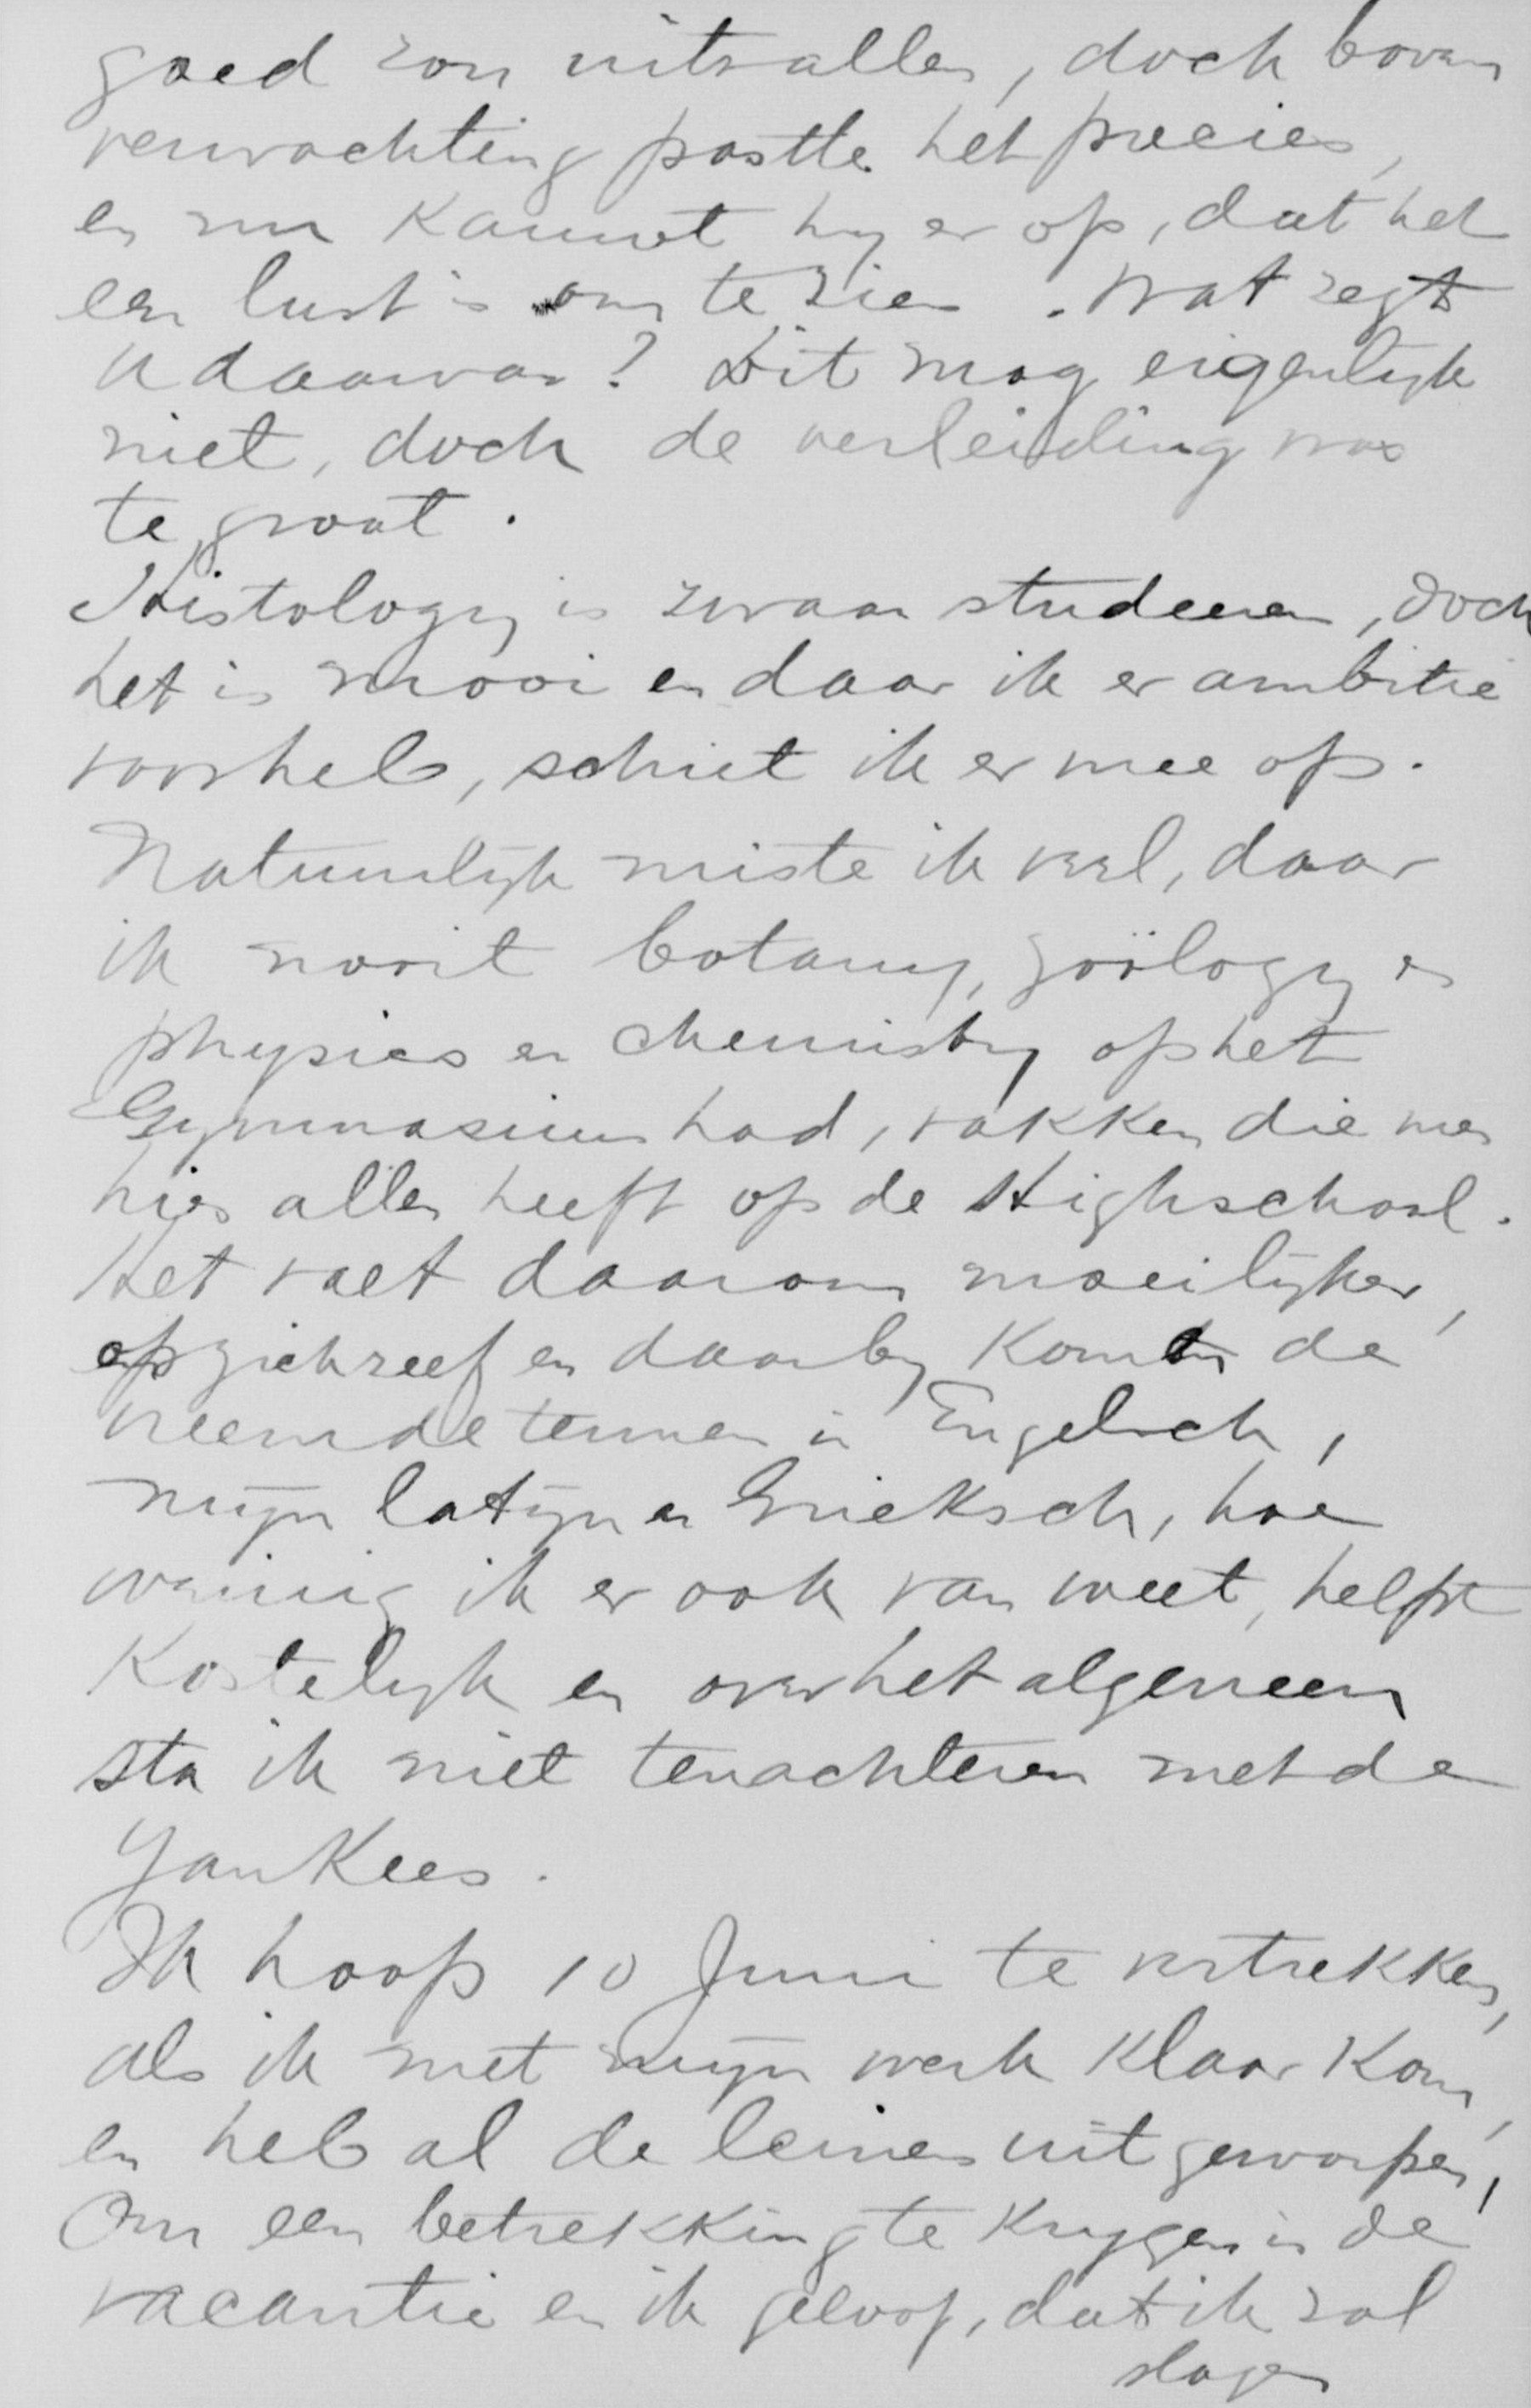 goed zou uitvallen, doch boven
verwachting pastte het precies,
en nu kauwt hy er op, dat het
een lust is om te zien. Wat zegt
u daarvan? Dit mag eigenlyk
niet, doch de verleiding was
te groot.
Histology is zwaar studeeren, doch
het is mooi en daar ik er ambitie
voor heb, schiet ik er mee op.
Natuurlyk miste ik veel, daar
ik nooit botany, zoölogy en
physics en chemistry op het
Gymnasium had, vakken die men
hier allen heeft op de Highschool.
Het valt daarom moeilyker,
op zich zelf en daarby komen de
vreemde termen in Engelsch,
myn latyn en Grieksch, hoe
weinig ik er ook van weet, helpt
Kostelyk en over het algemeen
sta ik niet ten achteren met de
Yankees.
Ik hoop 10 Juni te vertrekken,
als ik met myn werk klaar kom,
en heb al de leinen uitgeworpen,
Om een betrekking te krygen in de
vacantie en ik geloof, dat ik zal
slagen